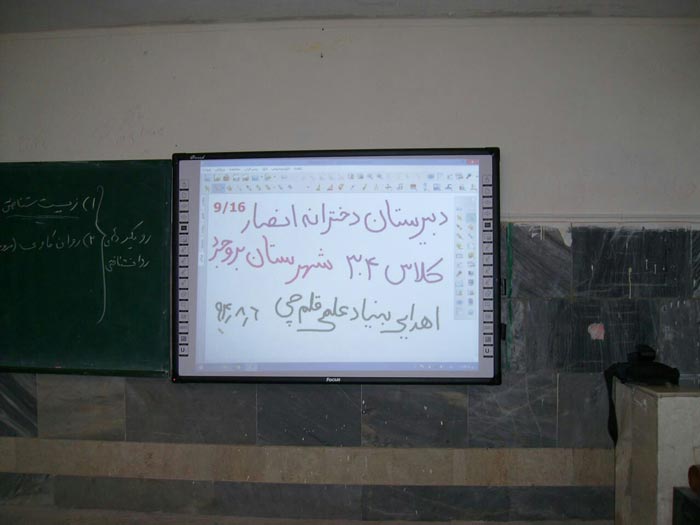 9/16
دبیرستان دخترانه انصار
کلاس ۳۰۴ شهرستان بروجرد
اهدایی بنیاد علمی قلم چی ۹۴٫۸٫۶
FOCUS
۱) زیست شناسی
رویکردهای
روانشناختی
۲) روان کاوی